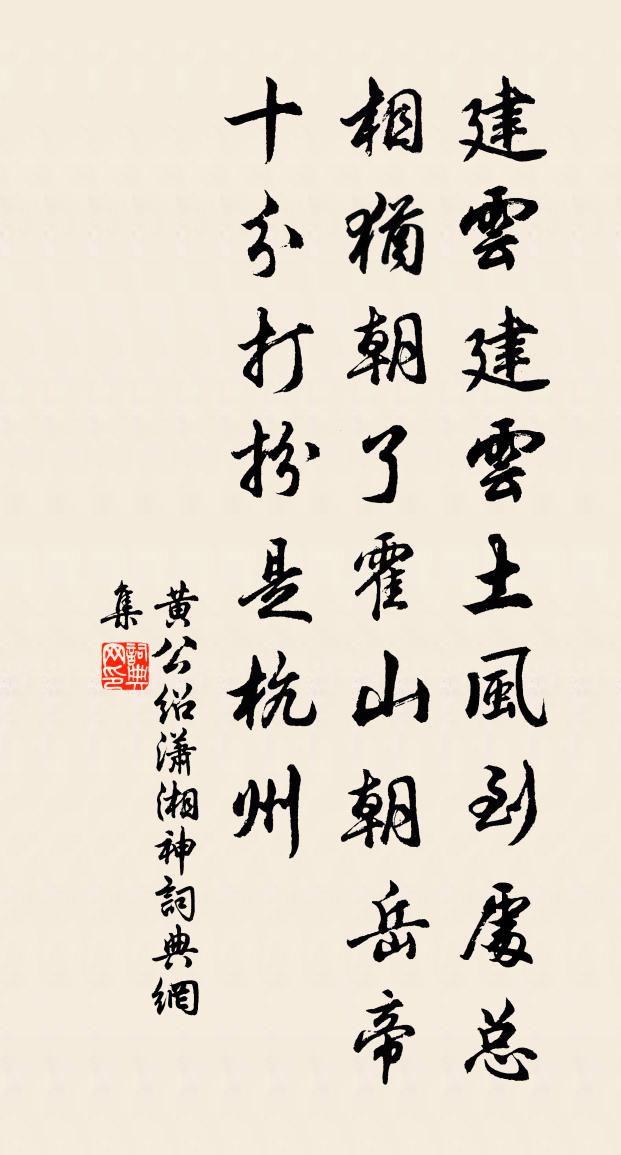 建雲建雲土風到處总
相猶朝了霍山朝岳帝
十分打扮是杭州
黄公绍瀟湘神詞典網
集
詞典
网印